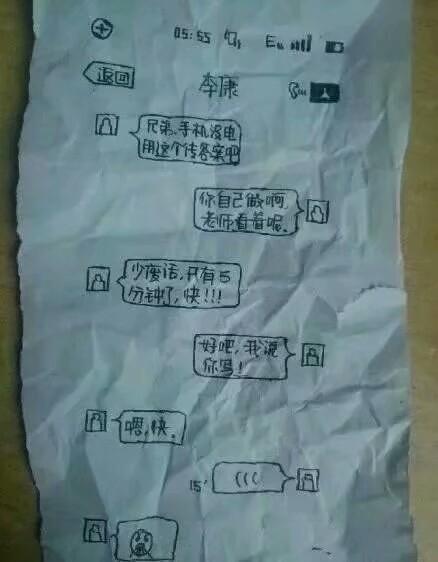 05:55 E
返回
李康
兄弟、手机没电
用这个传答案吧
你自己做啊,
老师看着呢.
少废话,只有5
分钟了,快!!!
好吧,我说
你写!
嗯,快.
15'
(((